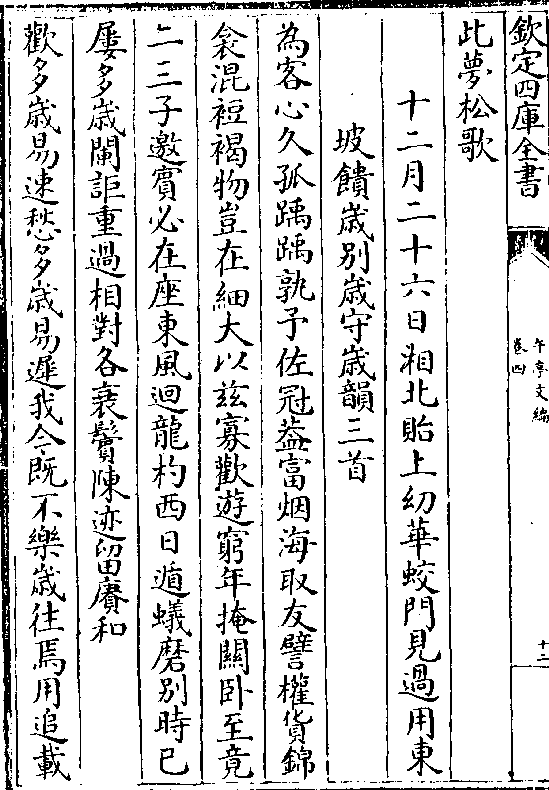 欽定四庫全書
午亭文編
卷四
十二
此夢松歌
十二月二十六日湘北貽上幼華蛟門見過用東
坡饋歲別歲守歲韻三首
為客心久孤踽踽孰予佐冠蓋富烟海取友譬權貨錦
衾混裋褐物豈在細大以茲寡歡遊窮年掩關卧至竟
二三子邀賓必在座東風迴龍杓西日遁蟻磨別時已
屢多歲闌詎重過相對各衰鬢陳迹留賡和
歡多歲易速愁多歲易遲我今既不樂歲往焉用追載